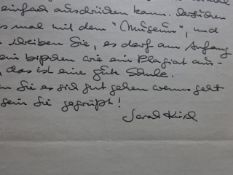 einfach ausdrücken kann.
mal mit dem "Museum", und
schreiben Sie, es darf am Anfang
ein bißchen wie ein Plagiat aus-
das ist eine gute Schule.
Sie es sich gut gehen wenns geht
sein Sie gegrüßt!
Sarah Kirsch